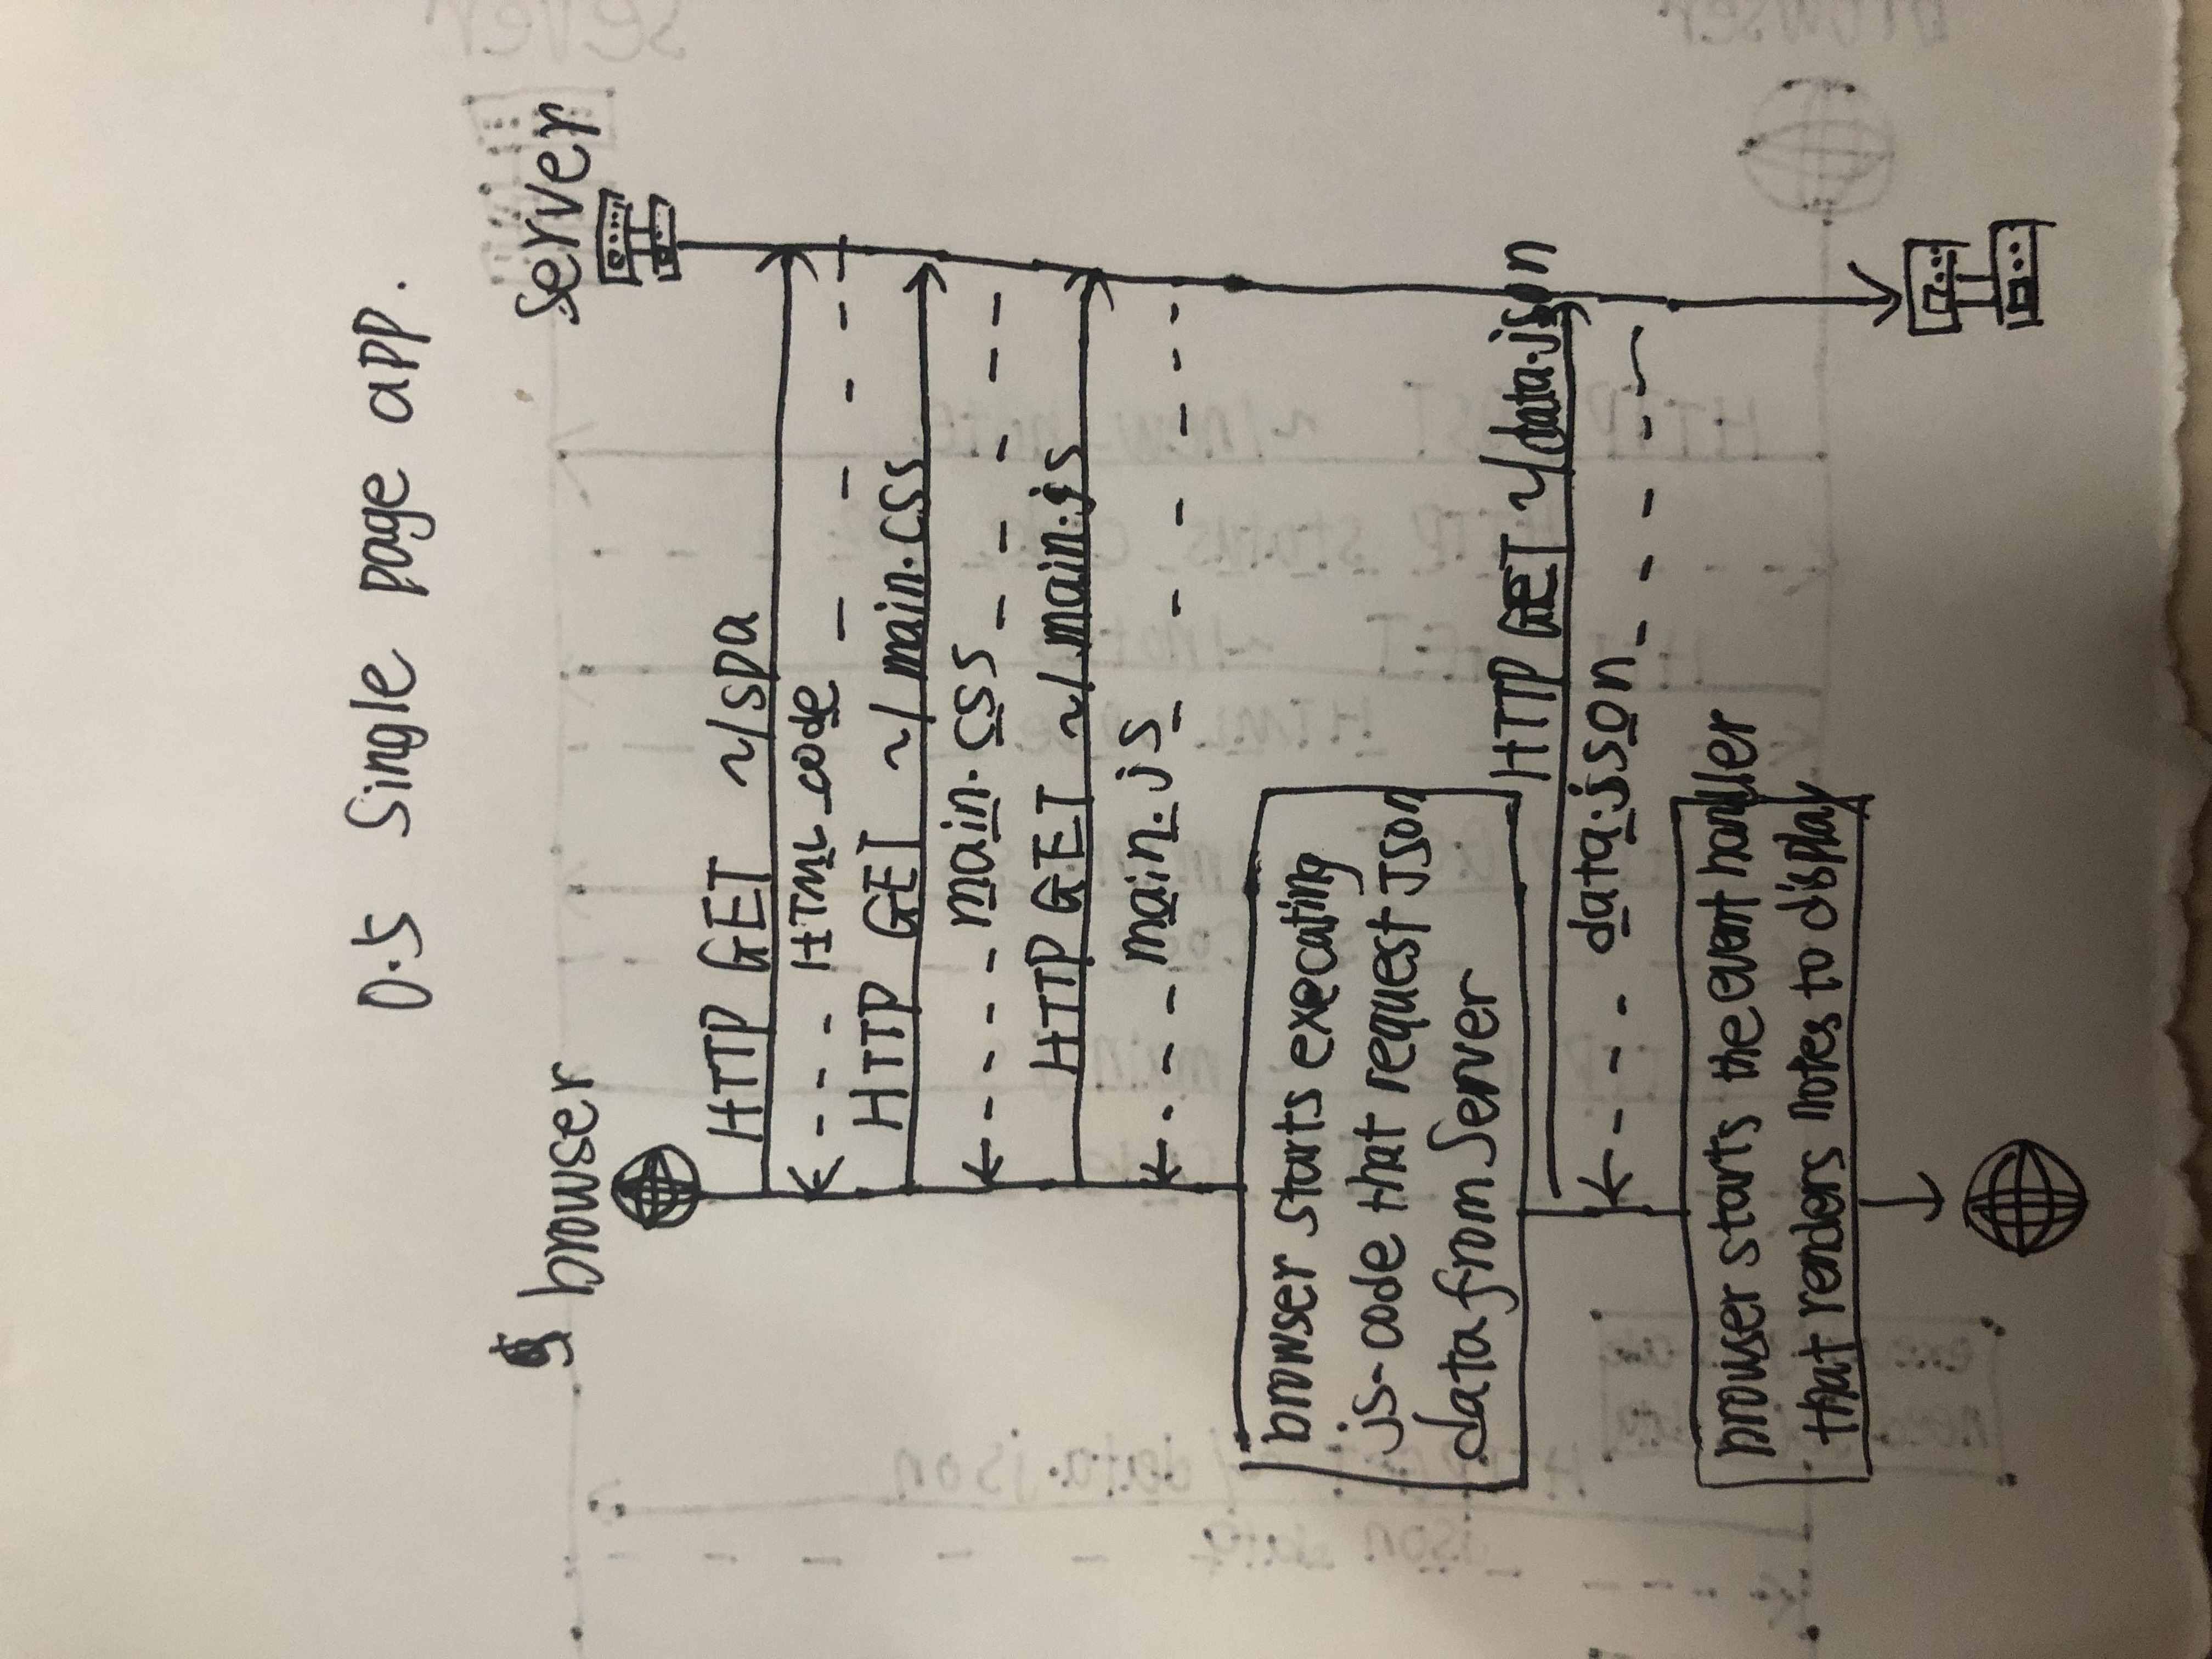 0.5 Single page app.
browser
server
HTTP GET ~/spa
HTML code
HTTP GET ~/main.css
main.css
HTTP GET ~/main.js
main.js
browser starts executing
js-code that request json
data from Server
HTTP GET ~/data.json
data.json
browser starts the event handler
that renders notes to display